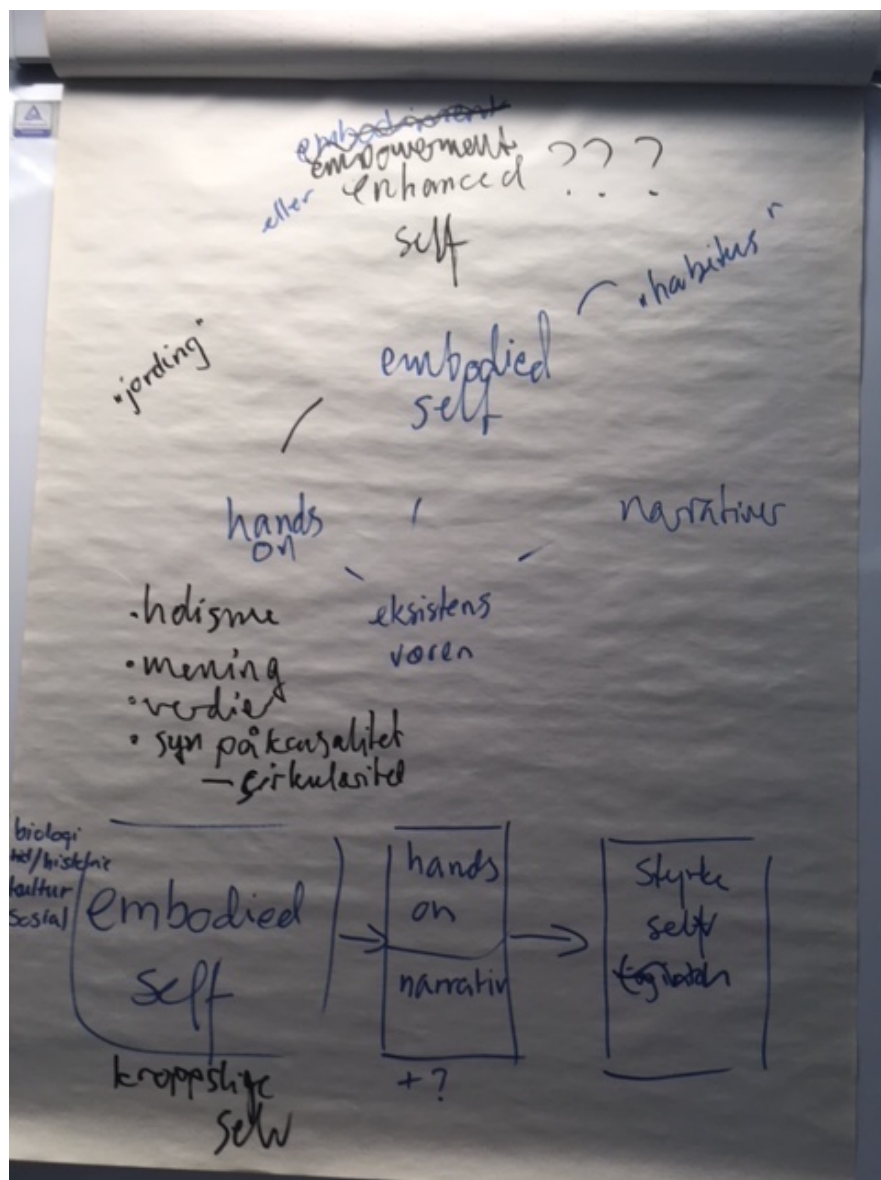 empowerment
eller enhanced ???
self
"habitus"
"jording"
embodied
self
hands
on
narrativer
eksistens
væren
• holisme
• mening
• verdier
• syn på kausalitet
– sirkularitet
biologi
tid/historie
kultur
sosial
embodied
self
kroppslige
selv
hands
on
narrativ
+ ?
styrke
self